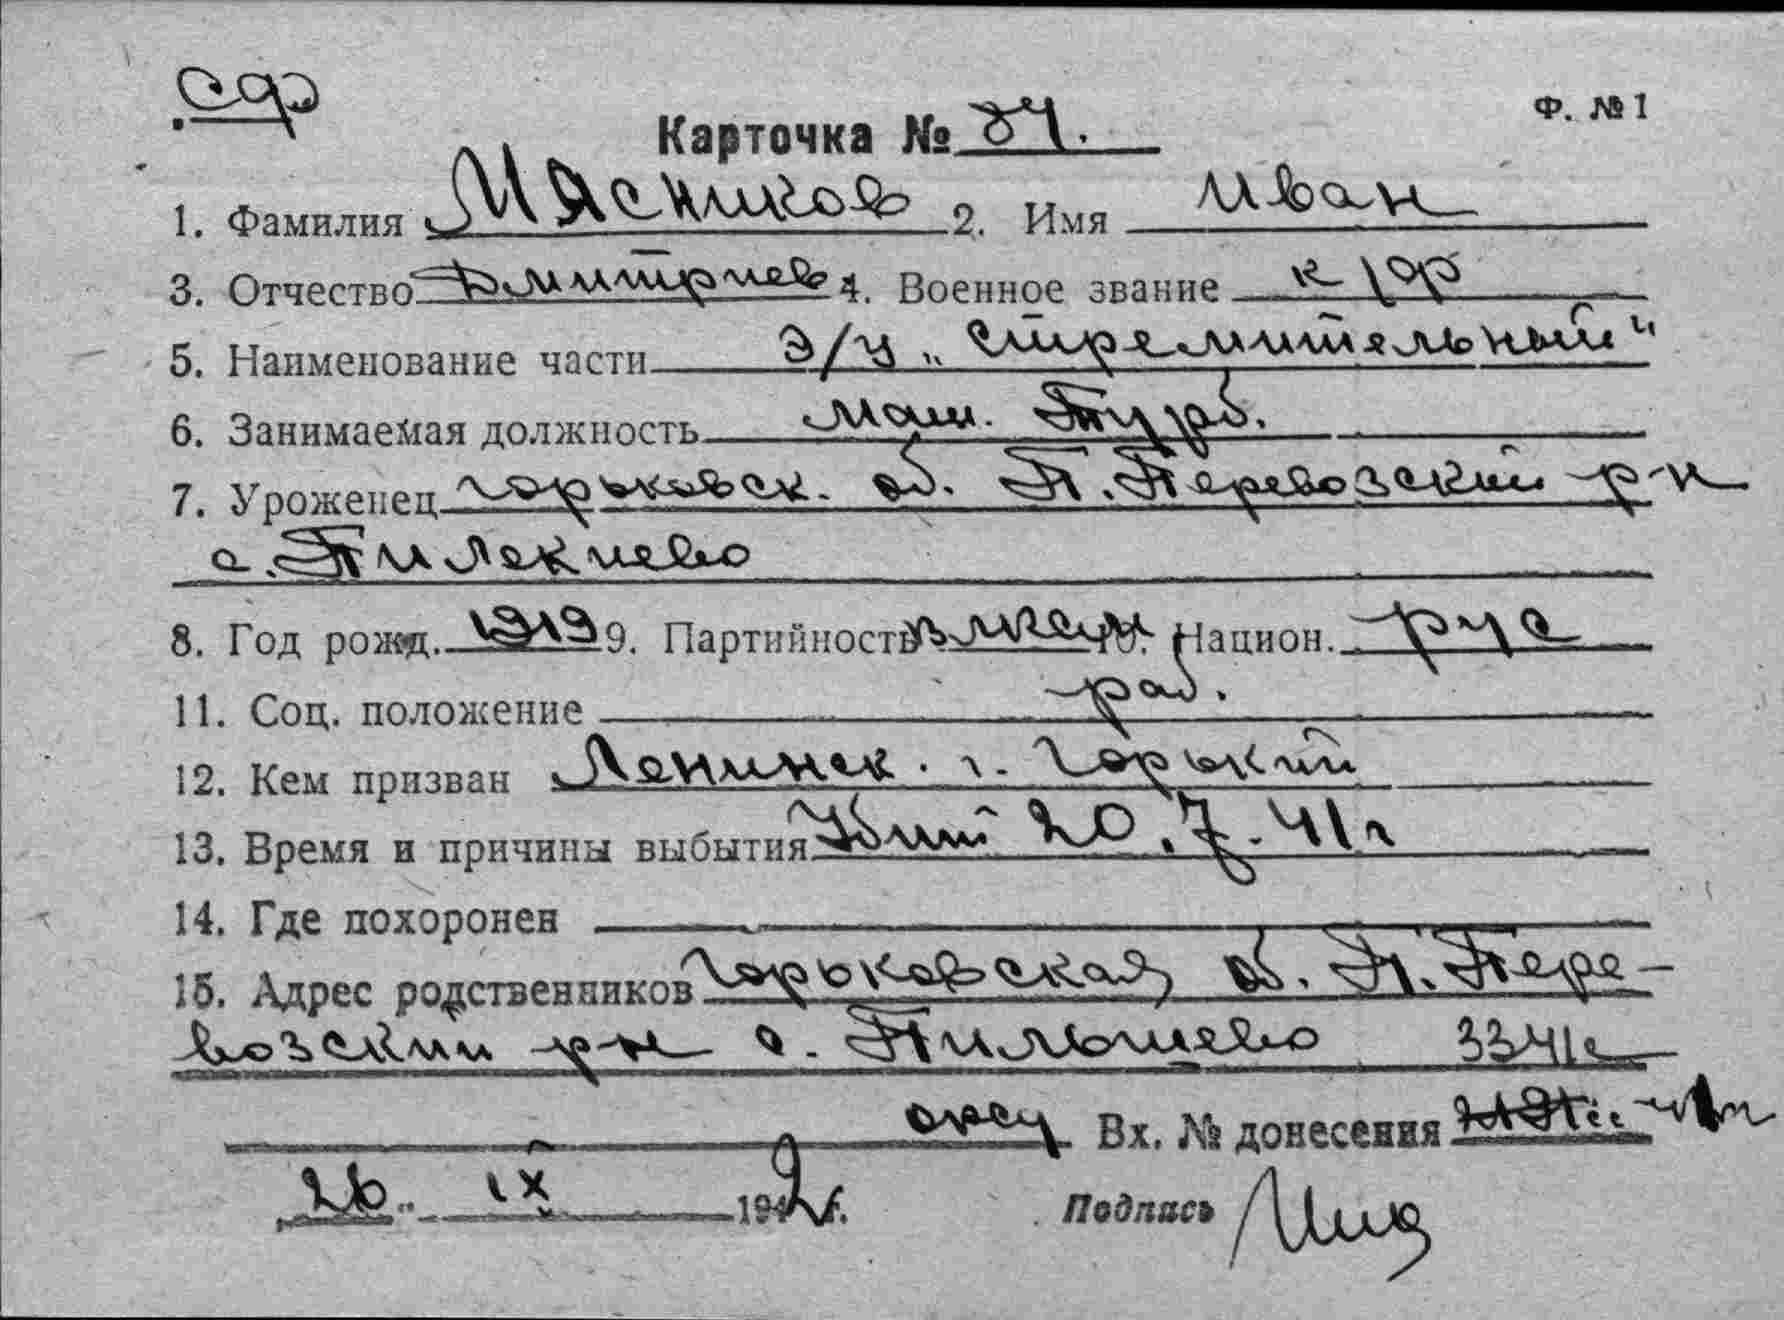 СФ
Ф. № 1
Карточка № 84.
1. Фамилия Мясников 2. Имя Иван
3. Отчество Дмитриев 4. Военное звание к/ф
5. Наименование части Э/м „Стремительный"
6. Занимаемая должность маш. Турб.
7. Уроженец Горьковск. об. П. Перевозский р-н
с. Пилекшево
8. Год рожд. 1919 9. Партийность ВЛКСМ 10. Национ. рус
11. Соц. положение раб.
12. Кем призван Ленинск. г. Горький
13. Время и причины выбытия Убит 20.7.41 г
14. Где похоронен
15. Адрес родственников Горьковская об. П. Пере-
возский р-н с. 3341с
Вх. № донесения
26 " IX 1942 г.
Подпись